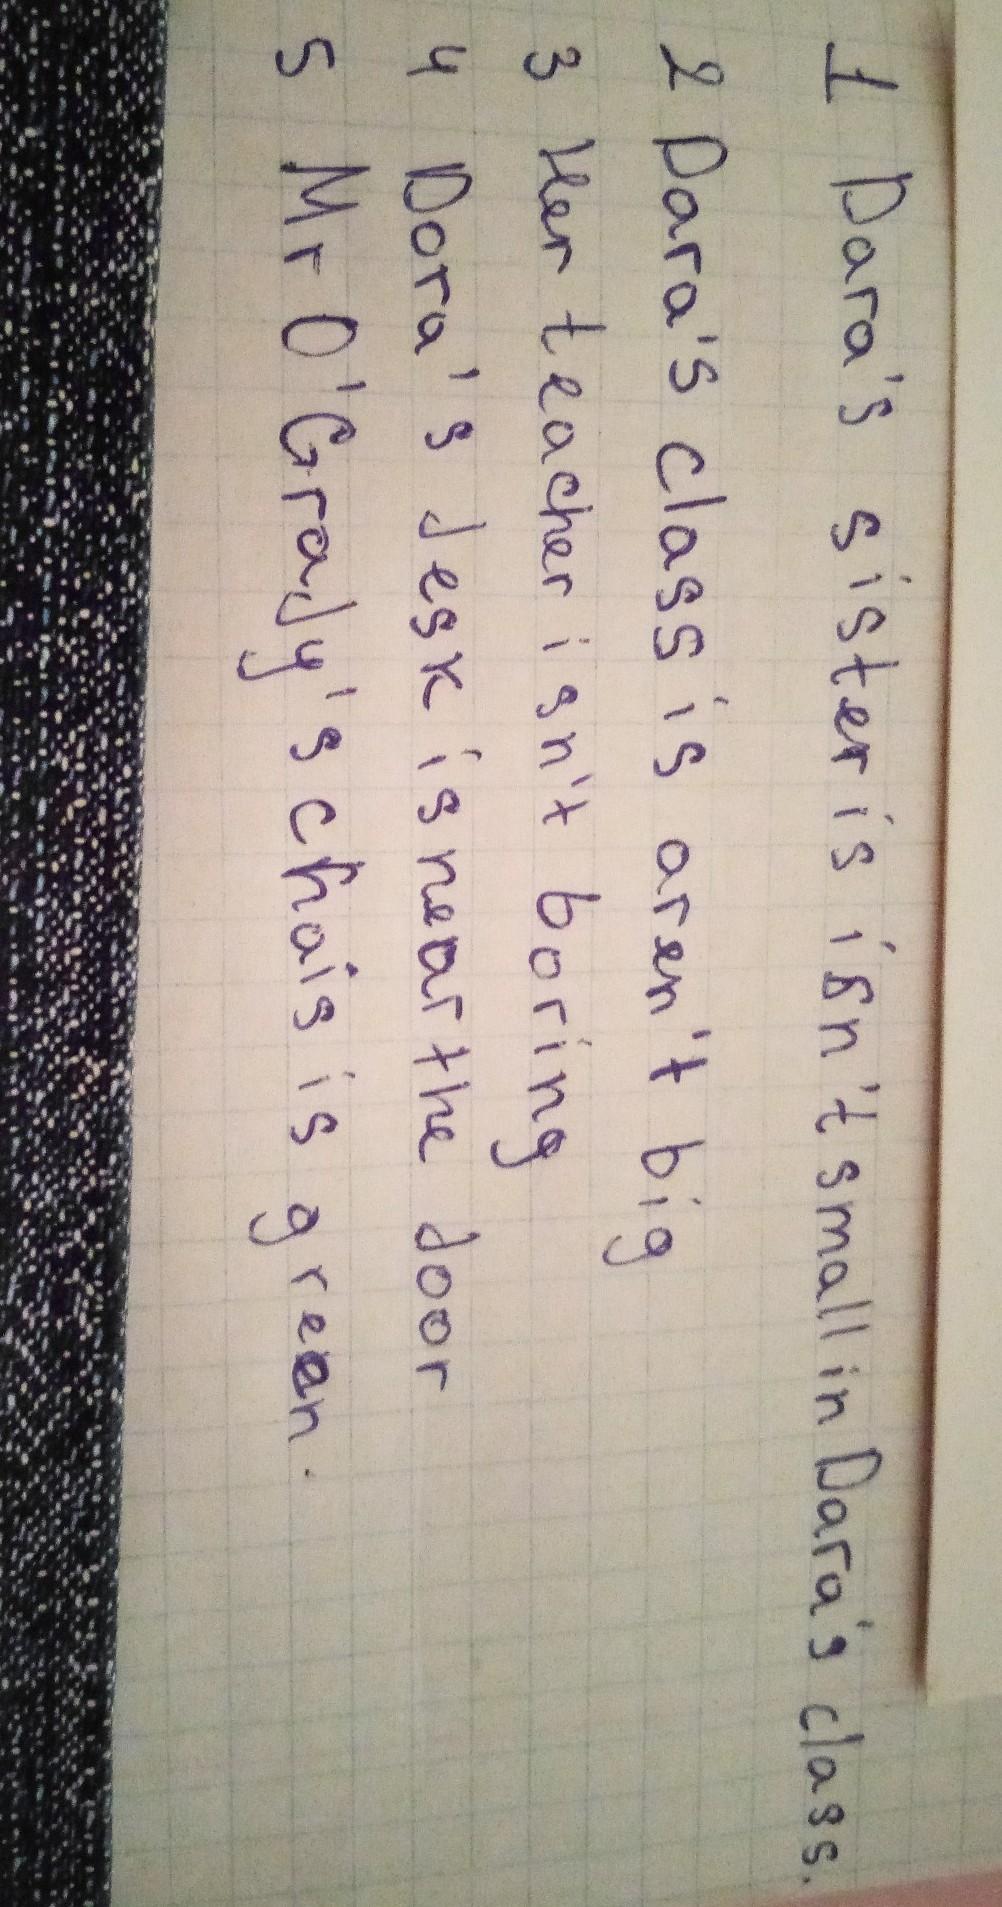 1 Dara's sister is isn't small in Dara's class.
2 Dara's class is aren't big
3 Her teacher isn't boring
4 Dora's desk is near the door
5 Mr O'Grady's chais is green.